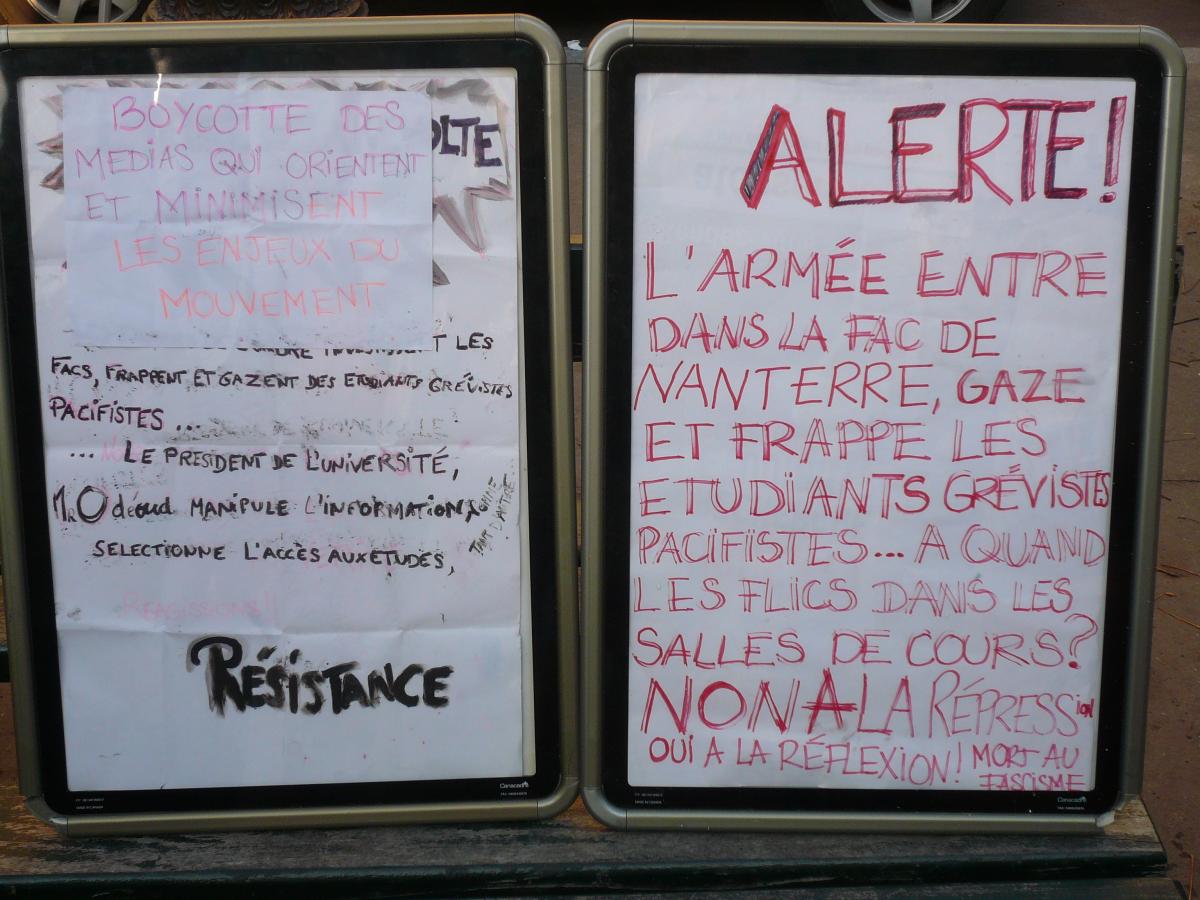 OLTE
BOYCOTTE DES
MEDIAS QUI ORIENTENT
ET MINIMISENT
LES ENJEUX DU
MOUVEMENT
T LES
FACS, FRAPPENT ET GAZENT DES ETUDIANTS GRÉVISTES
PACIFISTES ...
... LE PRESIDENT DE L'UNIVERSITÉ,
MR O déaud MANIPULE L'INFORMATION, COMME
TANT D'AUTRE
SELECTIONNE L'ACCÈS AUX ETUDES,
REAGISSONS!!
RÉSISTANCE
ALERTE!
L'ARMÉE ENTRE
DANS LA FAC DE
NANTERRE, GAZE
ET FRAPPE LES
ETUDIANTS GRÉVISTES
PACIFISTES... A QUAND
LES FLICS DANS LES
SALLES DE COURS?
NON A LA RÉPRESSION
OUI A LA RÉFLEXION! MORT AU
FASCISME